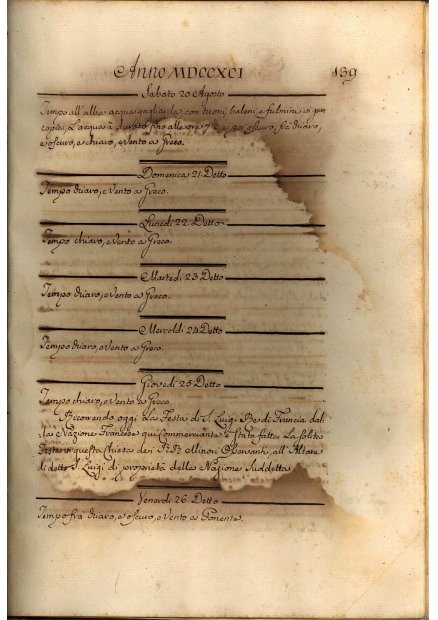 Anno MDCCXCI
139
Sabato 20 Agosto
Tempo all'alba, acqua gagliarda, con tuoni, baleni, e fulmini in
copia, e l'acqua à durato fino alle ore e poi oscuro, frà chiaro,
e oscuro, e chiaro, e Vento a Greco.
Domenica 21 Detto
Tempo chiaro, e Vento a Greco.
Lunedi 22 Detto
Tempo chiaro, e Vento a Greco.
Martedi 23 Detto
Tempo chiaro, e Vento a Greco.
Mercoldi 24 Detto
Tempo chiaro, e Vento a Greco.
Giovedi 25 Detto
Tempo chiaro, e Vento a Greco.
Ricorrendo oggi la Festa di S. Luigi Re di Francia dal-
la Nazione Francese qui Commerciante è stata fatta la solita
Festa in questa Chiesa dei Minori Osservanti, all'Altare
di detto S. Luigi di proprietà della Nazione Suddetta
Venerdi 26 Detto
Tempo frà chiaro, e oscuro, e Vento a Ponente.